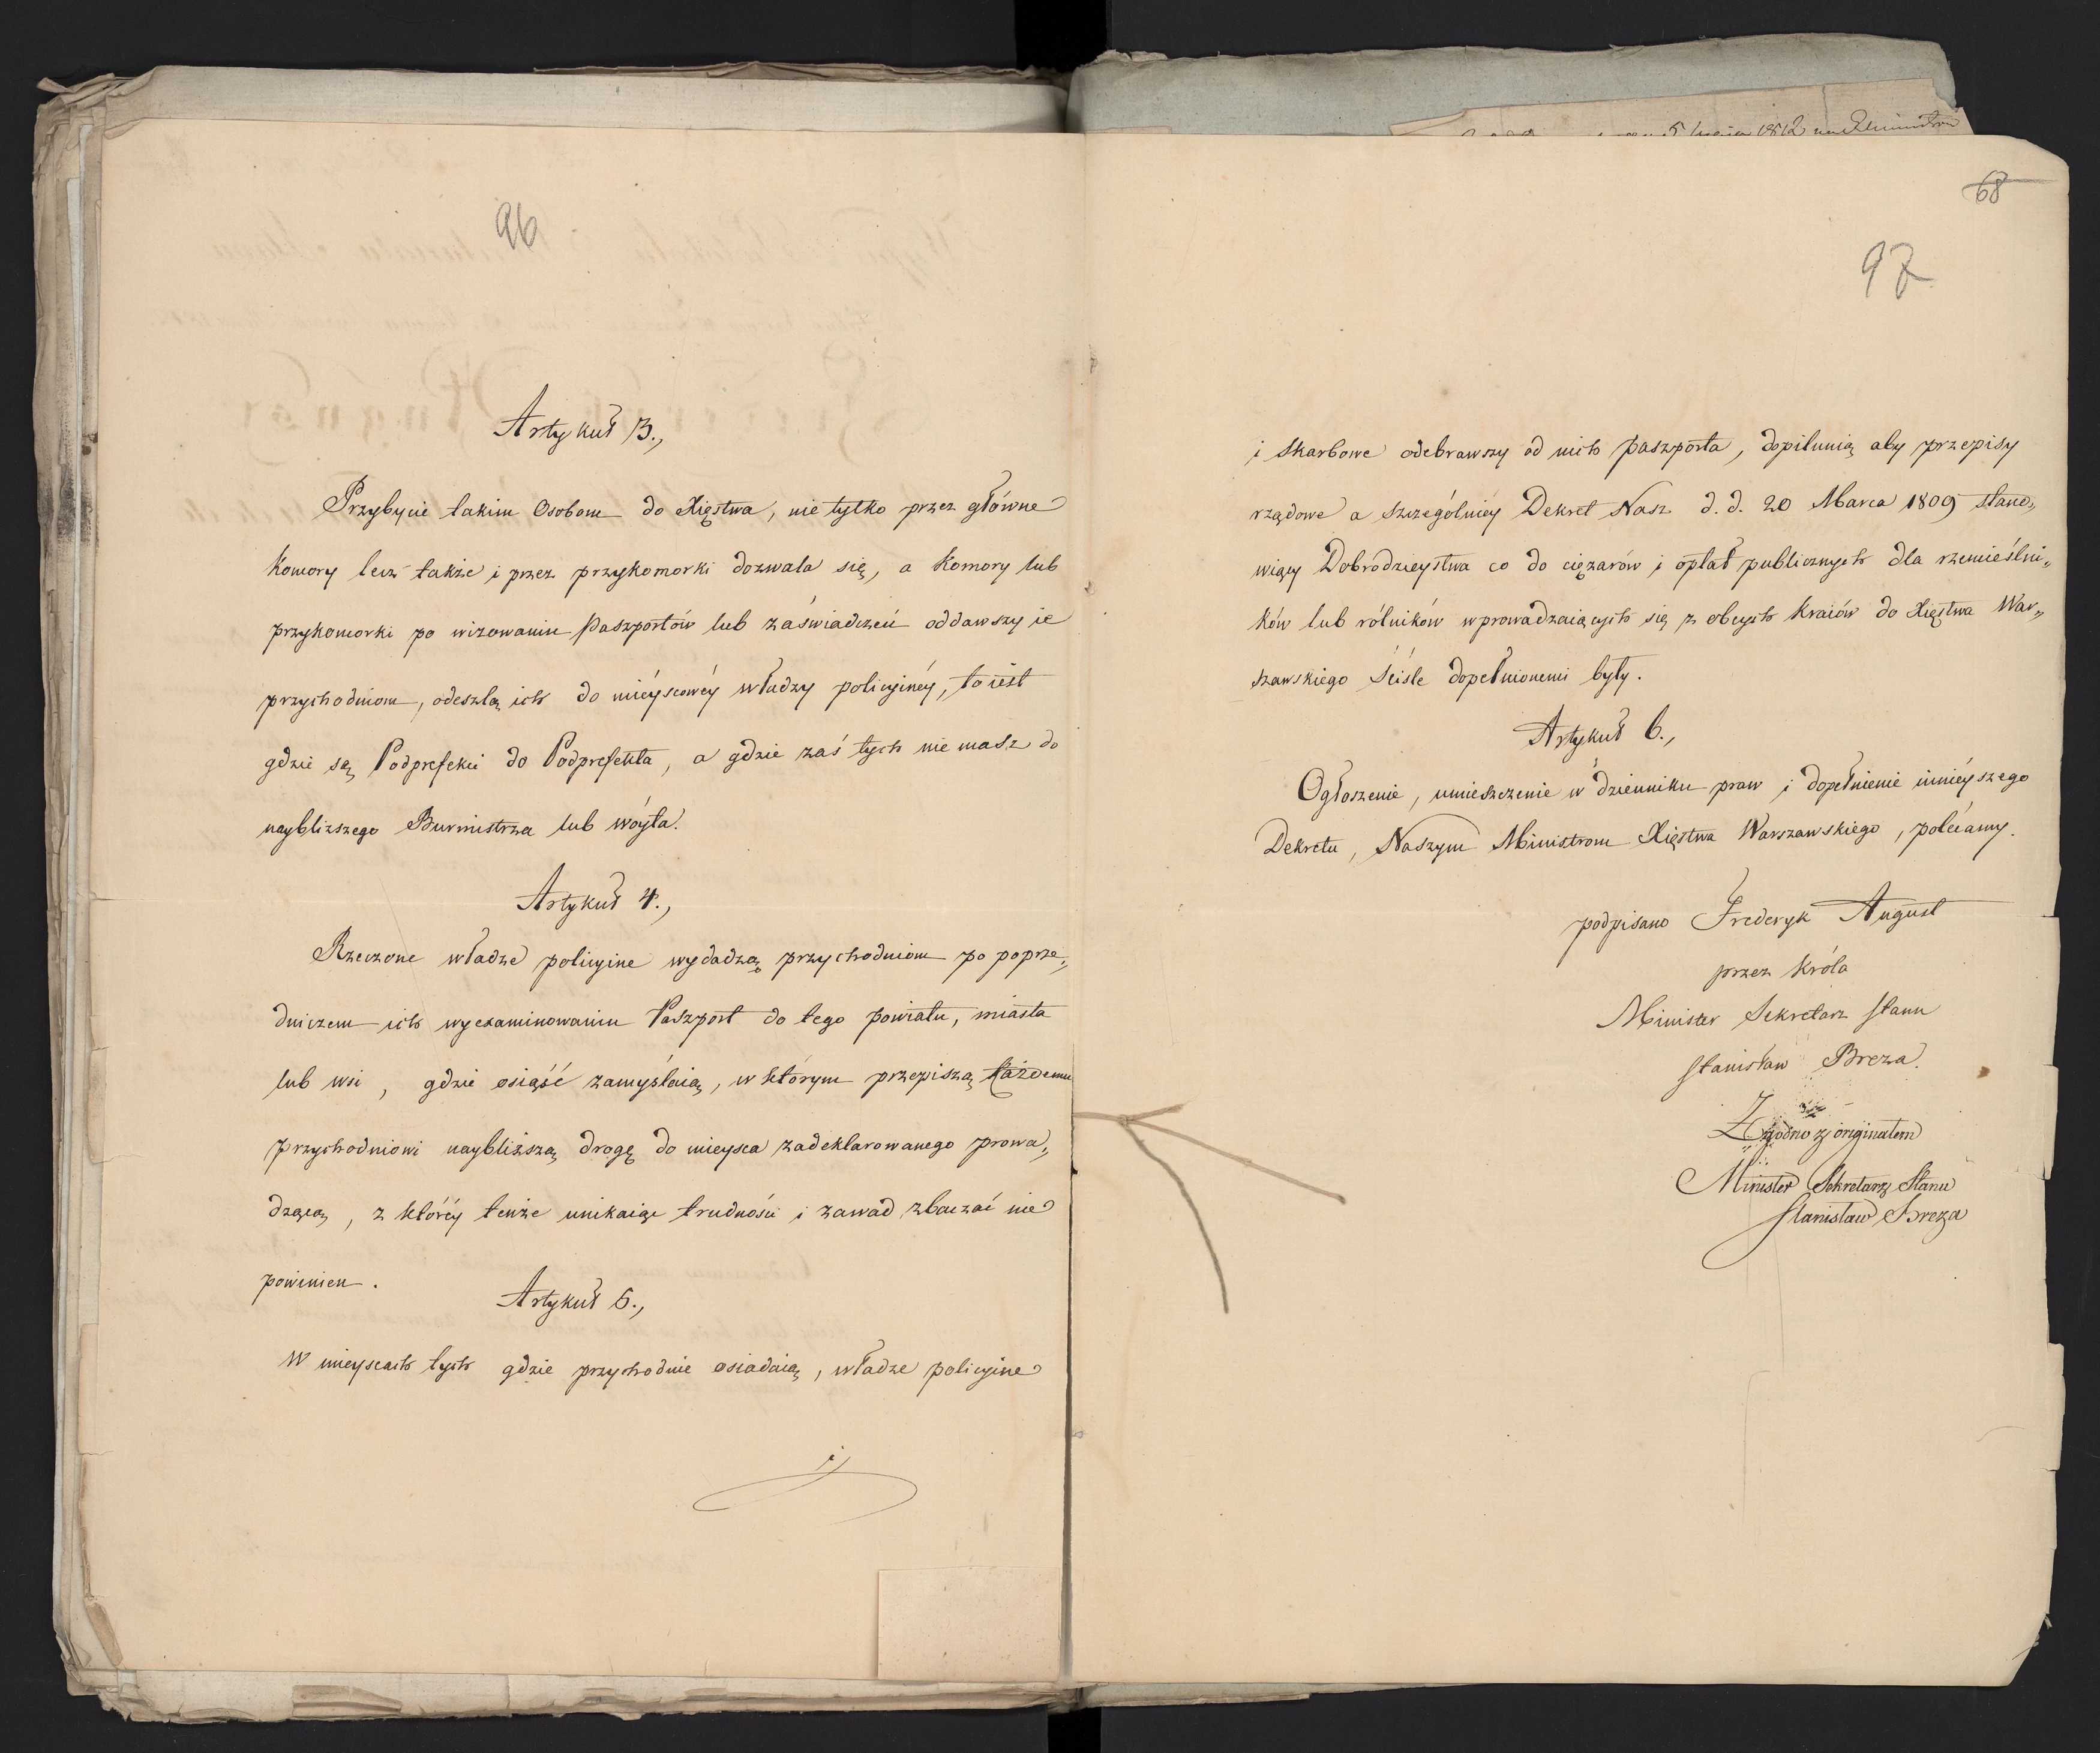 96
Artykuł 3.,
Przybycie takim Osobom do Xięstwa, nie tylko przez główne
Komory lecz także i przez przykomorki dozwala się, a Komory lub
przykomorki po wizowaniu Paszportów lub zaświadczeń oddawszy ie
przychodniom, odeszlą ich do mieyscowéy władzy policyinéy, to iest
gdzie są Podprefekci do Podprefekta, a gdzie zaś tych nie masz do
naybliższego Burmistrza lub wóyta.
Artykuł 4.,
Rzeczone władze policyine wydadzą przychodniom po poprze„
dniczem ich wyexaminowaniu Paszport do tego powiatu, miasta
lub wsi, gdzie osiąść zamyślaią, w którym przepiszą każdemu
przychodniowi naybliższą drogę do mieysca zadeklarowanego prowa„
dzącą, z któréy tenże unikaiąc trudności i zawad zbaczać nie
powinien.
Artykuł 5.,
W mieyscach tych gdzie przychodnie osiadaią, władze policyine
i
5 maja 1812
68
97
i skarbowe odebrawszy od nich paszporta, dopilnuią aby przepisy
rządowe a szczególniéy Dekret Nasz d. d. 20 Marca 1809 stano„
wiący Dobrodzieystwa co do ciężarów i opłat publicznych dla rzemieślni„
ków lub rólników wprowadzaiących się z obcych kraiów do Xięstwa War„
szawskiego ściśle dopełnionemi były.
Artykuł 6.,
Ogłoszenie, umieszczenie w dzienniku praw i dopełnienie ninieyszego
Dekretu, Naszym Ministrom Xięstwa Warszawskiego, polécamy.
podpisano Frederyk August
przez Króla
Minister Sekretarz Stanu
Stanisław Breza.
Zgodno z originałem
Minister Sekretarz Stanu
Stanisław Breza